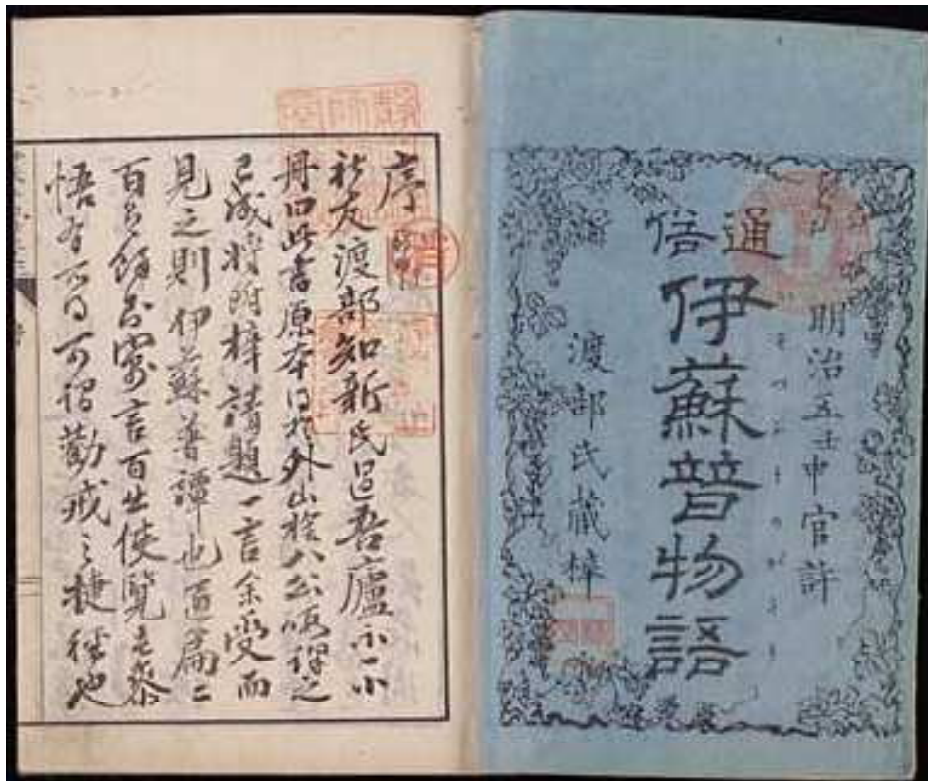 明治五壬申官許
通俗
伊蘇普物語
渡部氏藏梓
序
社友渡部知新氏過吾廬示一小
冊曰此書原本得於外山 公 譯之
已成將附梓請題一言余受而
見之則伊蘇普譚也通篇二
百 寓言百出使覽者
悟有所得可謂勸戒之捷徑也